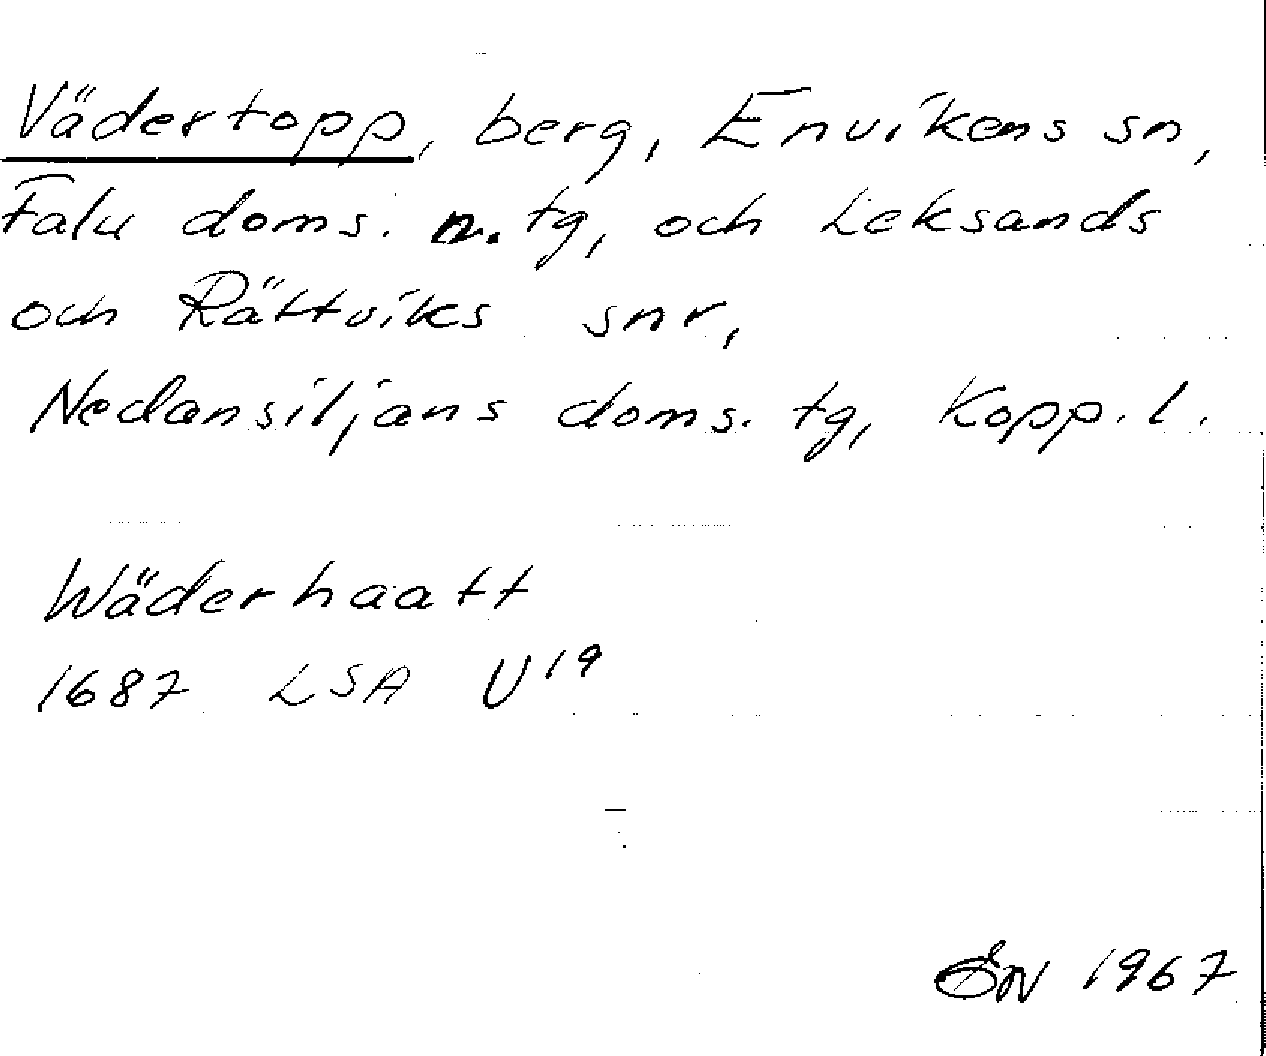 Vädertopp, berg, Envikens sn,
Falu doms. n. tg, och Leksands
och Rättviks snr,
Nedansiljans doms. tg, Kopp. l.
Wäderhaatt
1687 LSA U19
1967